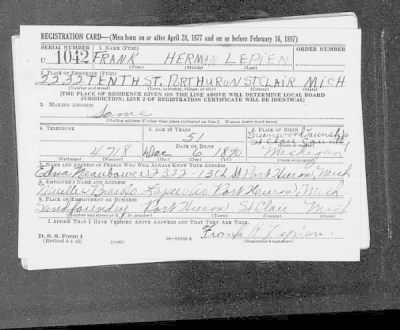 REGISTRATION CARD—(Men born on or after April 28, 1877 and on or before February 16, 1897)
SERIAL NUMBER 1. NAME (Print) ORDER NUMBER
U 1042 FRANK HERMAN LEPIEN
(First) (Middle) (Last)
2. PLACE OF RESIDENCE (Print)
2232 TENTH ST. PORT HURON ST CLAIR MICH
(Number and street) (Town, township, village, or city) (County) (State)
[THE PLACE OF RESIDENCE GIVEN ON THE LINE ABOVE WILL DETERMINE LOCAL BOARD
JURISDICTION; LINE 2 OF REGISTRATION CERTIFICATE WILL BE IDENTICAL]
3. MAILING ADDRESS
Same
[Mailing address if other than place indicated on line 2. If same insert word same]
4. TELEPHONE 5. AGE IN YEARS 6. PLACE OF BIRTH
51 Township
DATE OF BIRTH St Clair County
4718 Dec 6 1890 Michigan
(Exchange) (Number) (Mo.) (Day) (Yr.) (State or country)
7. NAME AND ADDRESS OF PERSON WHO WILL ALWAYS KNOW YOUR ADDRESS
Edna 2322-13th St Port Huron, Mich
8. EMPLOYER'S NAME AND ADDRESS
Port Huron, Mich
9. PLACE OF EMPLOYMENT OR BUSINESS
Port Huron St Clair Mich
(Number and street or R. F. D. number) (Town) (County) (State)
I AFFIRM THAT I HAVE VERIFIED ABOVE ANSWERS AND THAT THEY ARE TRUE.
D. S. S. Form 1
(Revised 4-1-42) (over)
Frank H Lepien
(Registrant's signature)